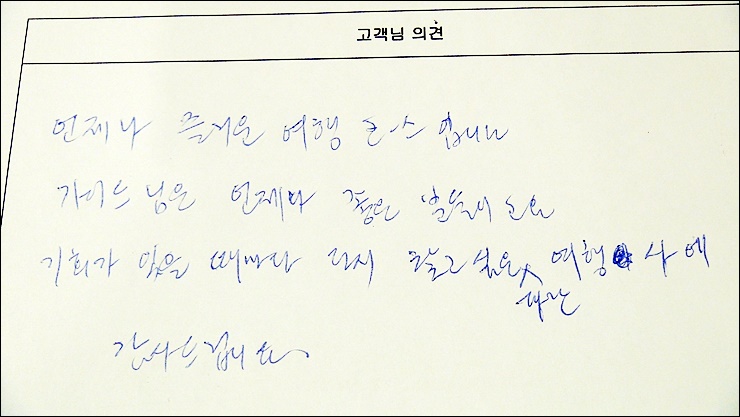 고객님 의견
언제나 즐거운 여행 코스 입니다
가이드님은 언제나 좋은
기회가 있을 때마다 다시 찾고 싶은 여행사에
대한
감사드립니다.